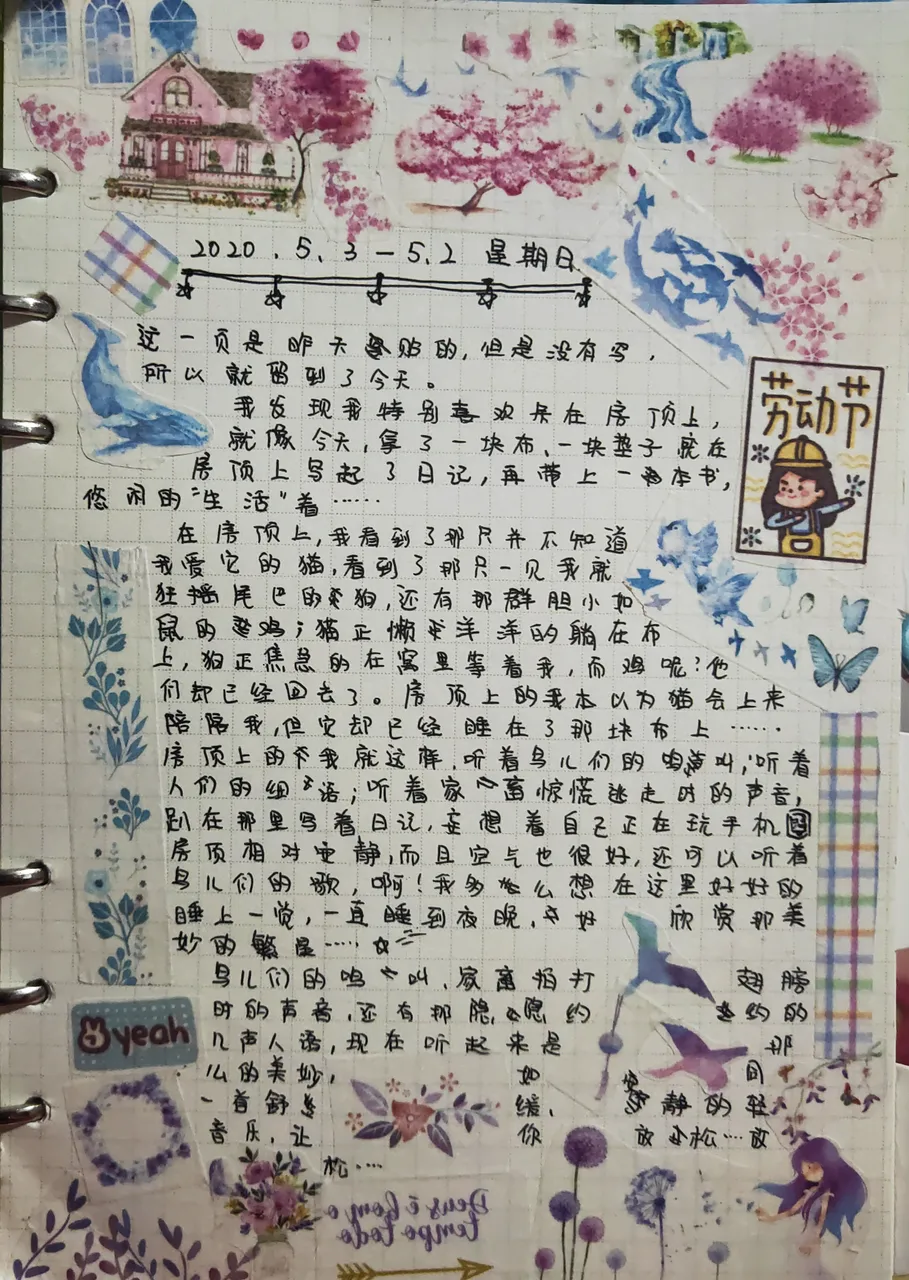 2020.5.3-5.2 星期日
这一页是昨天贴的,但是没有写,
所以就留到了今天。
劳动节
我发现我特别喜欢呆在房顶上,
就像今天,拿了一块布、一块垫子就在
房顶上写起了日记,再带上一本书,
悠闲的"生活"着……
在房顶上,我看到了那只并不知道
我爱它的猫,看到了那只一见我就
狂摇尾巴的狗,还有那群胆小如
鼠的鸡;猫正懒洋洋的躺在布
上,狗正焦急的在窝里等着我,而鸡呢?他
们却已经回去了。房顶上的我本以为猫会上来
陪陪我,但它却已经睡在了那块布上……
房顶上的我就这样,听着鸟儿们的鸣叫;听着
人们的细语;听着家畜惊慌逃走时的声音,
趴在那里写着日记,妄想着自己正在玩手机
房顶相对安静,而且空气也很好,还可以听着
鸟儿们的歌,啊!我多么想在这里好好的
睡上一觉,一直睡到夜晚,好欣赏那美
妙的繁星……
鸟儿们的鸣叫,家禽拍打翅膀
时的声音,还有那隐隐约约的
yeah
几声人语,现在听起来是那
么的美妙,如同
一首舒缓、安静的轻
音乐,让你放松…放
松…
Deus é bom o
tempo todo